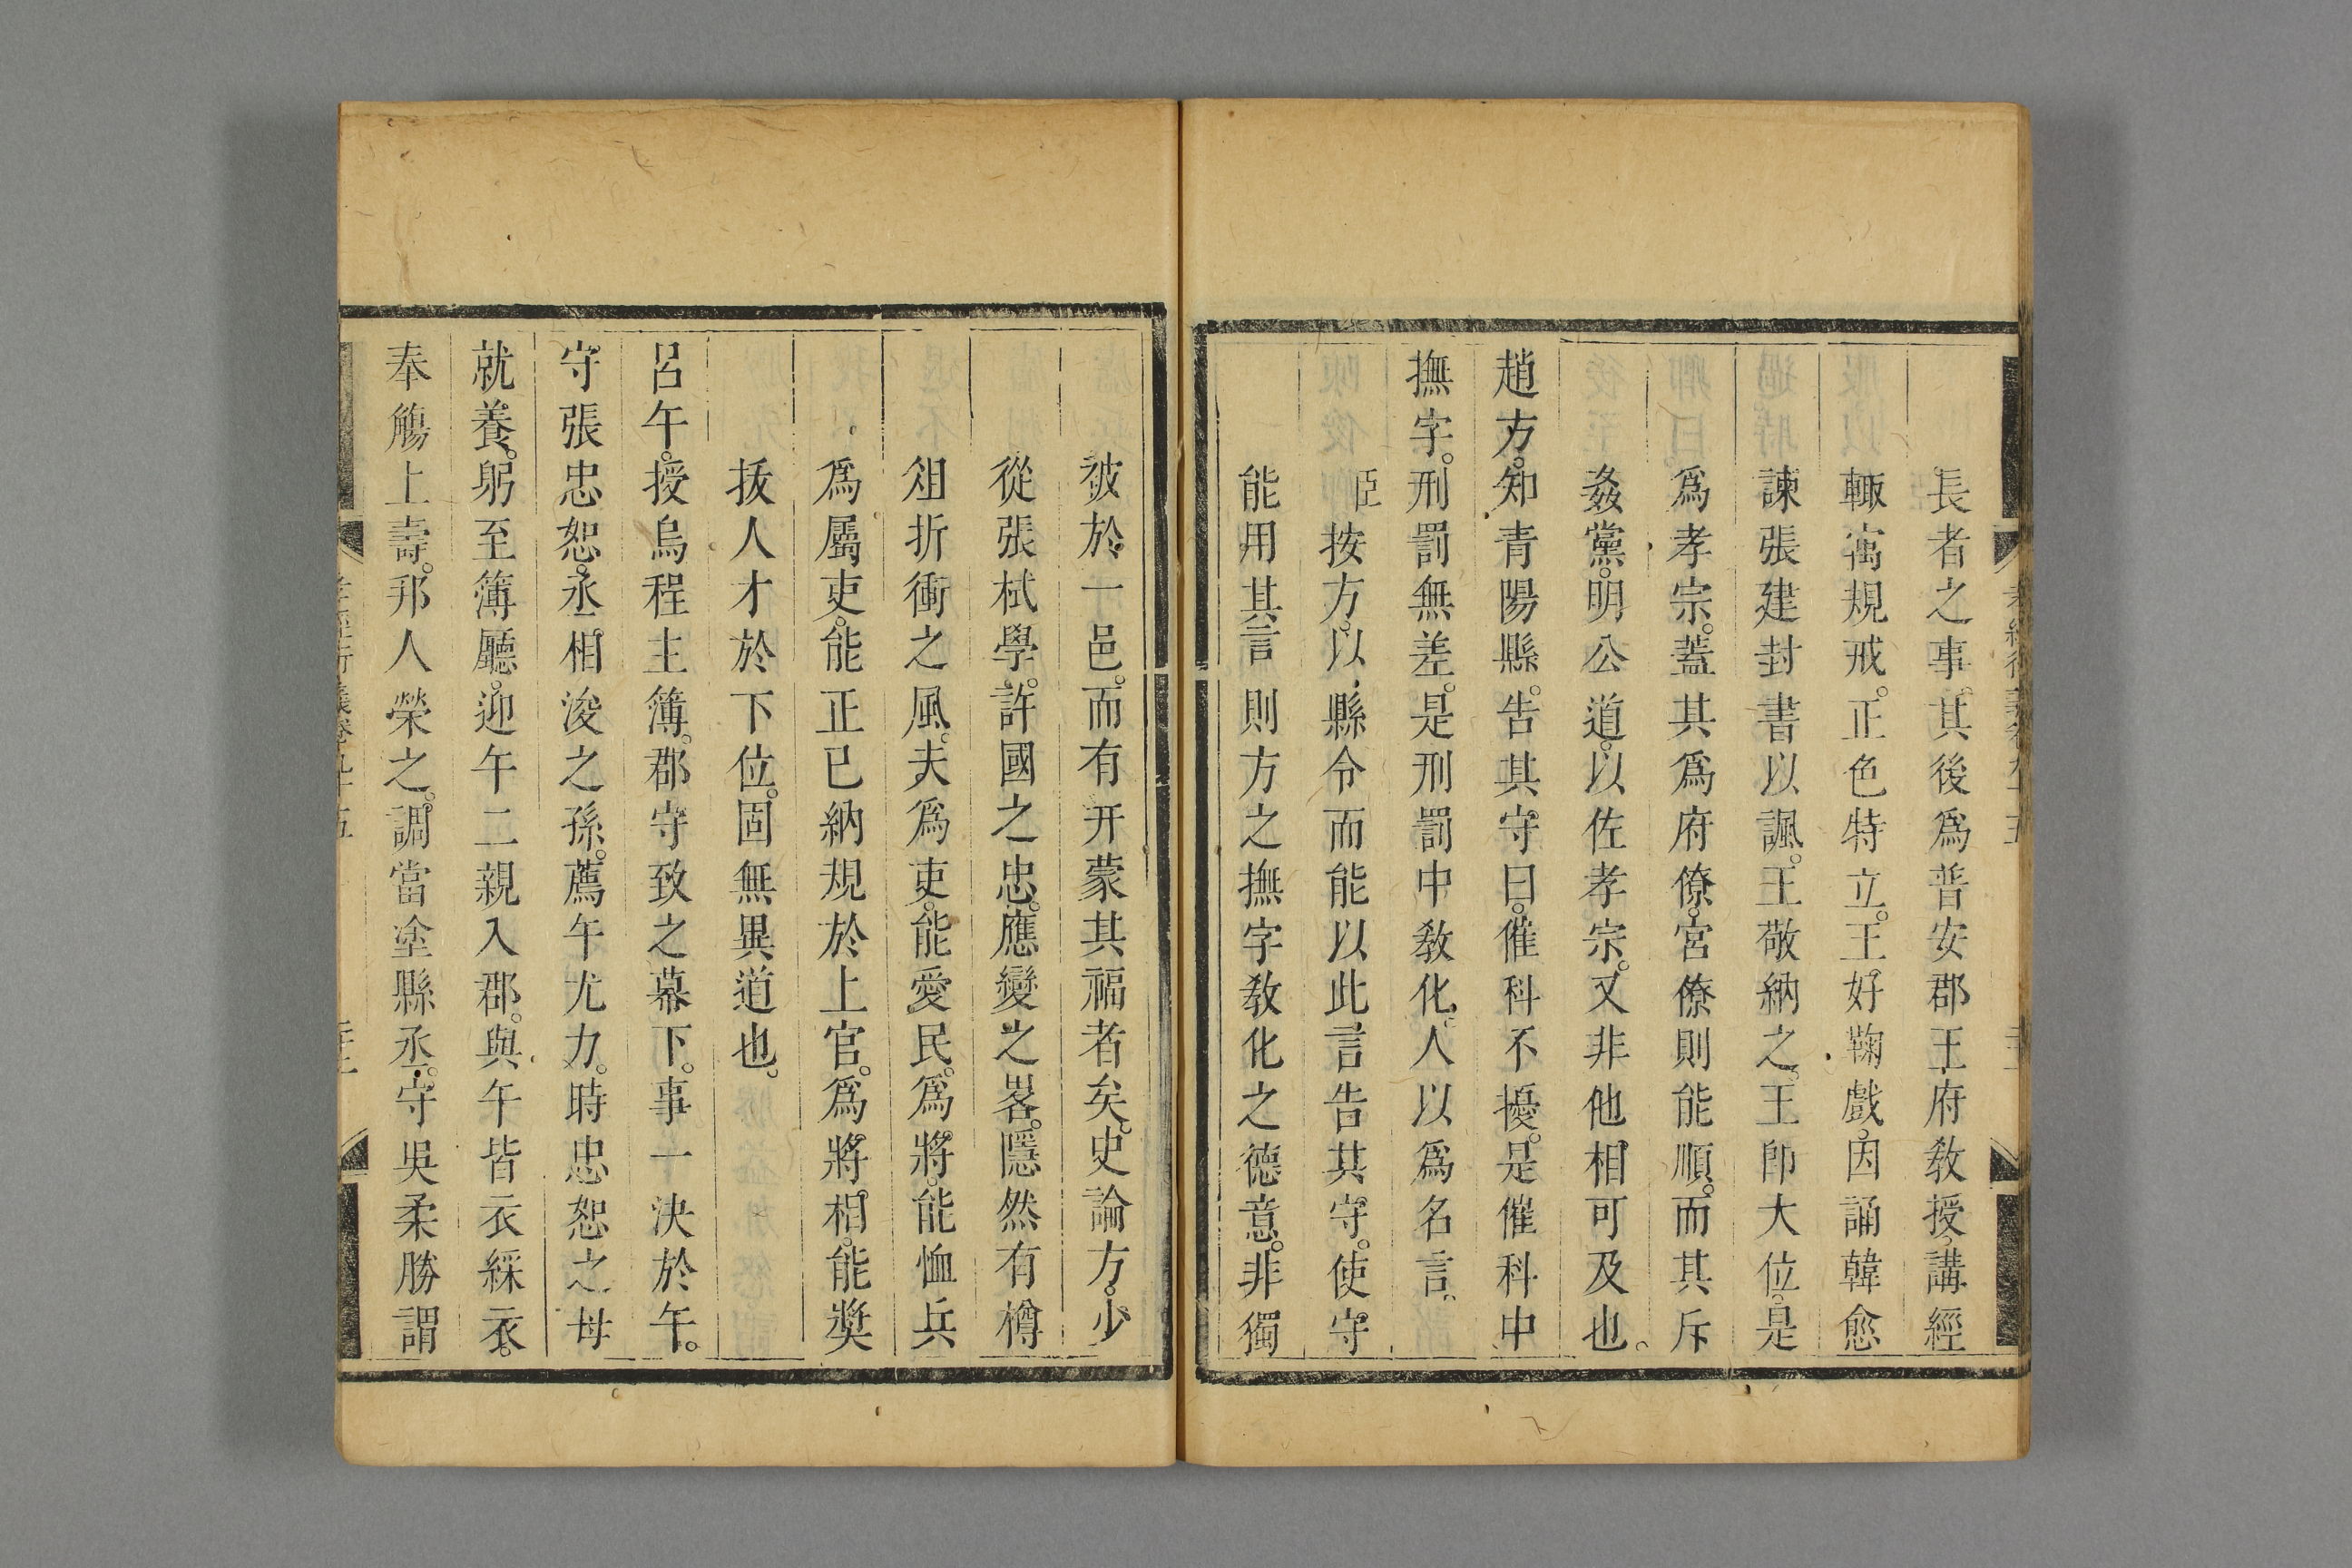 長者之事其後爲普安郡王府敎授講經
輙寓規戒。正色特立。王好鞠戲。因誦韓愈
諫張建封書以諷。王敬納之。王即大位。是
爲孝宗。蓋其爲府僚。宮僚則能順。而其斥
姦黨。明公道。以佐孝宗。又非他相可及也。
趙方。知青陽縣。告其守曰。催科不擾。是催科中
撫字。刑罰無差。是刑罰中敎化。人以爲名言。
臣按方以縣令而能以此言告其守。使守
能用其言則方之撫字敎化之德意。非獨
被於一邑。而有幵蒙其福者矣。史論方。少
從張栻學。許國之忠。應變之畧。隱然有樽
俎折衝之風。夫爲吏。能愛民。爲將。能恤兵
爲屬吏。能正已納規於上官。爲將相。能奬
拔人才於下位。固無異道也。
呂午。授烏程主簿。郡守致之幕下。事一決於午。
守張忠恕。丞相浚之孫。薦午尤力。時忠恕之母
就養。躬至簿廳。迎午二親入郡。與午皆衣綵衣。
奉觴上壽。邦人榮之。調當塗縣丞。守吳柔勝謂